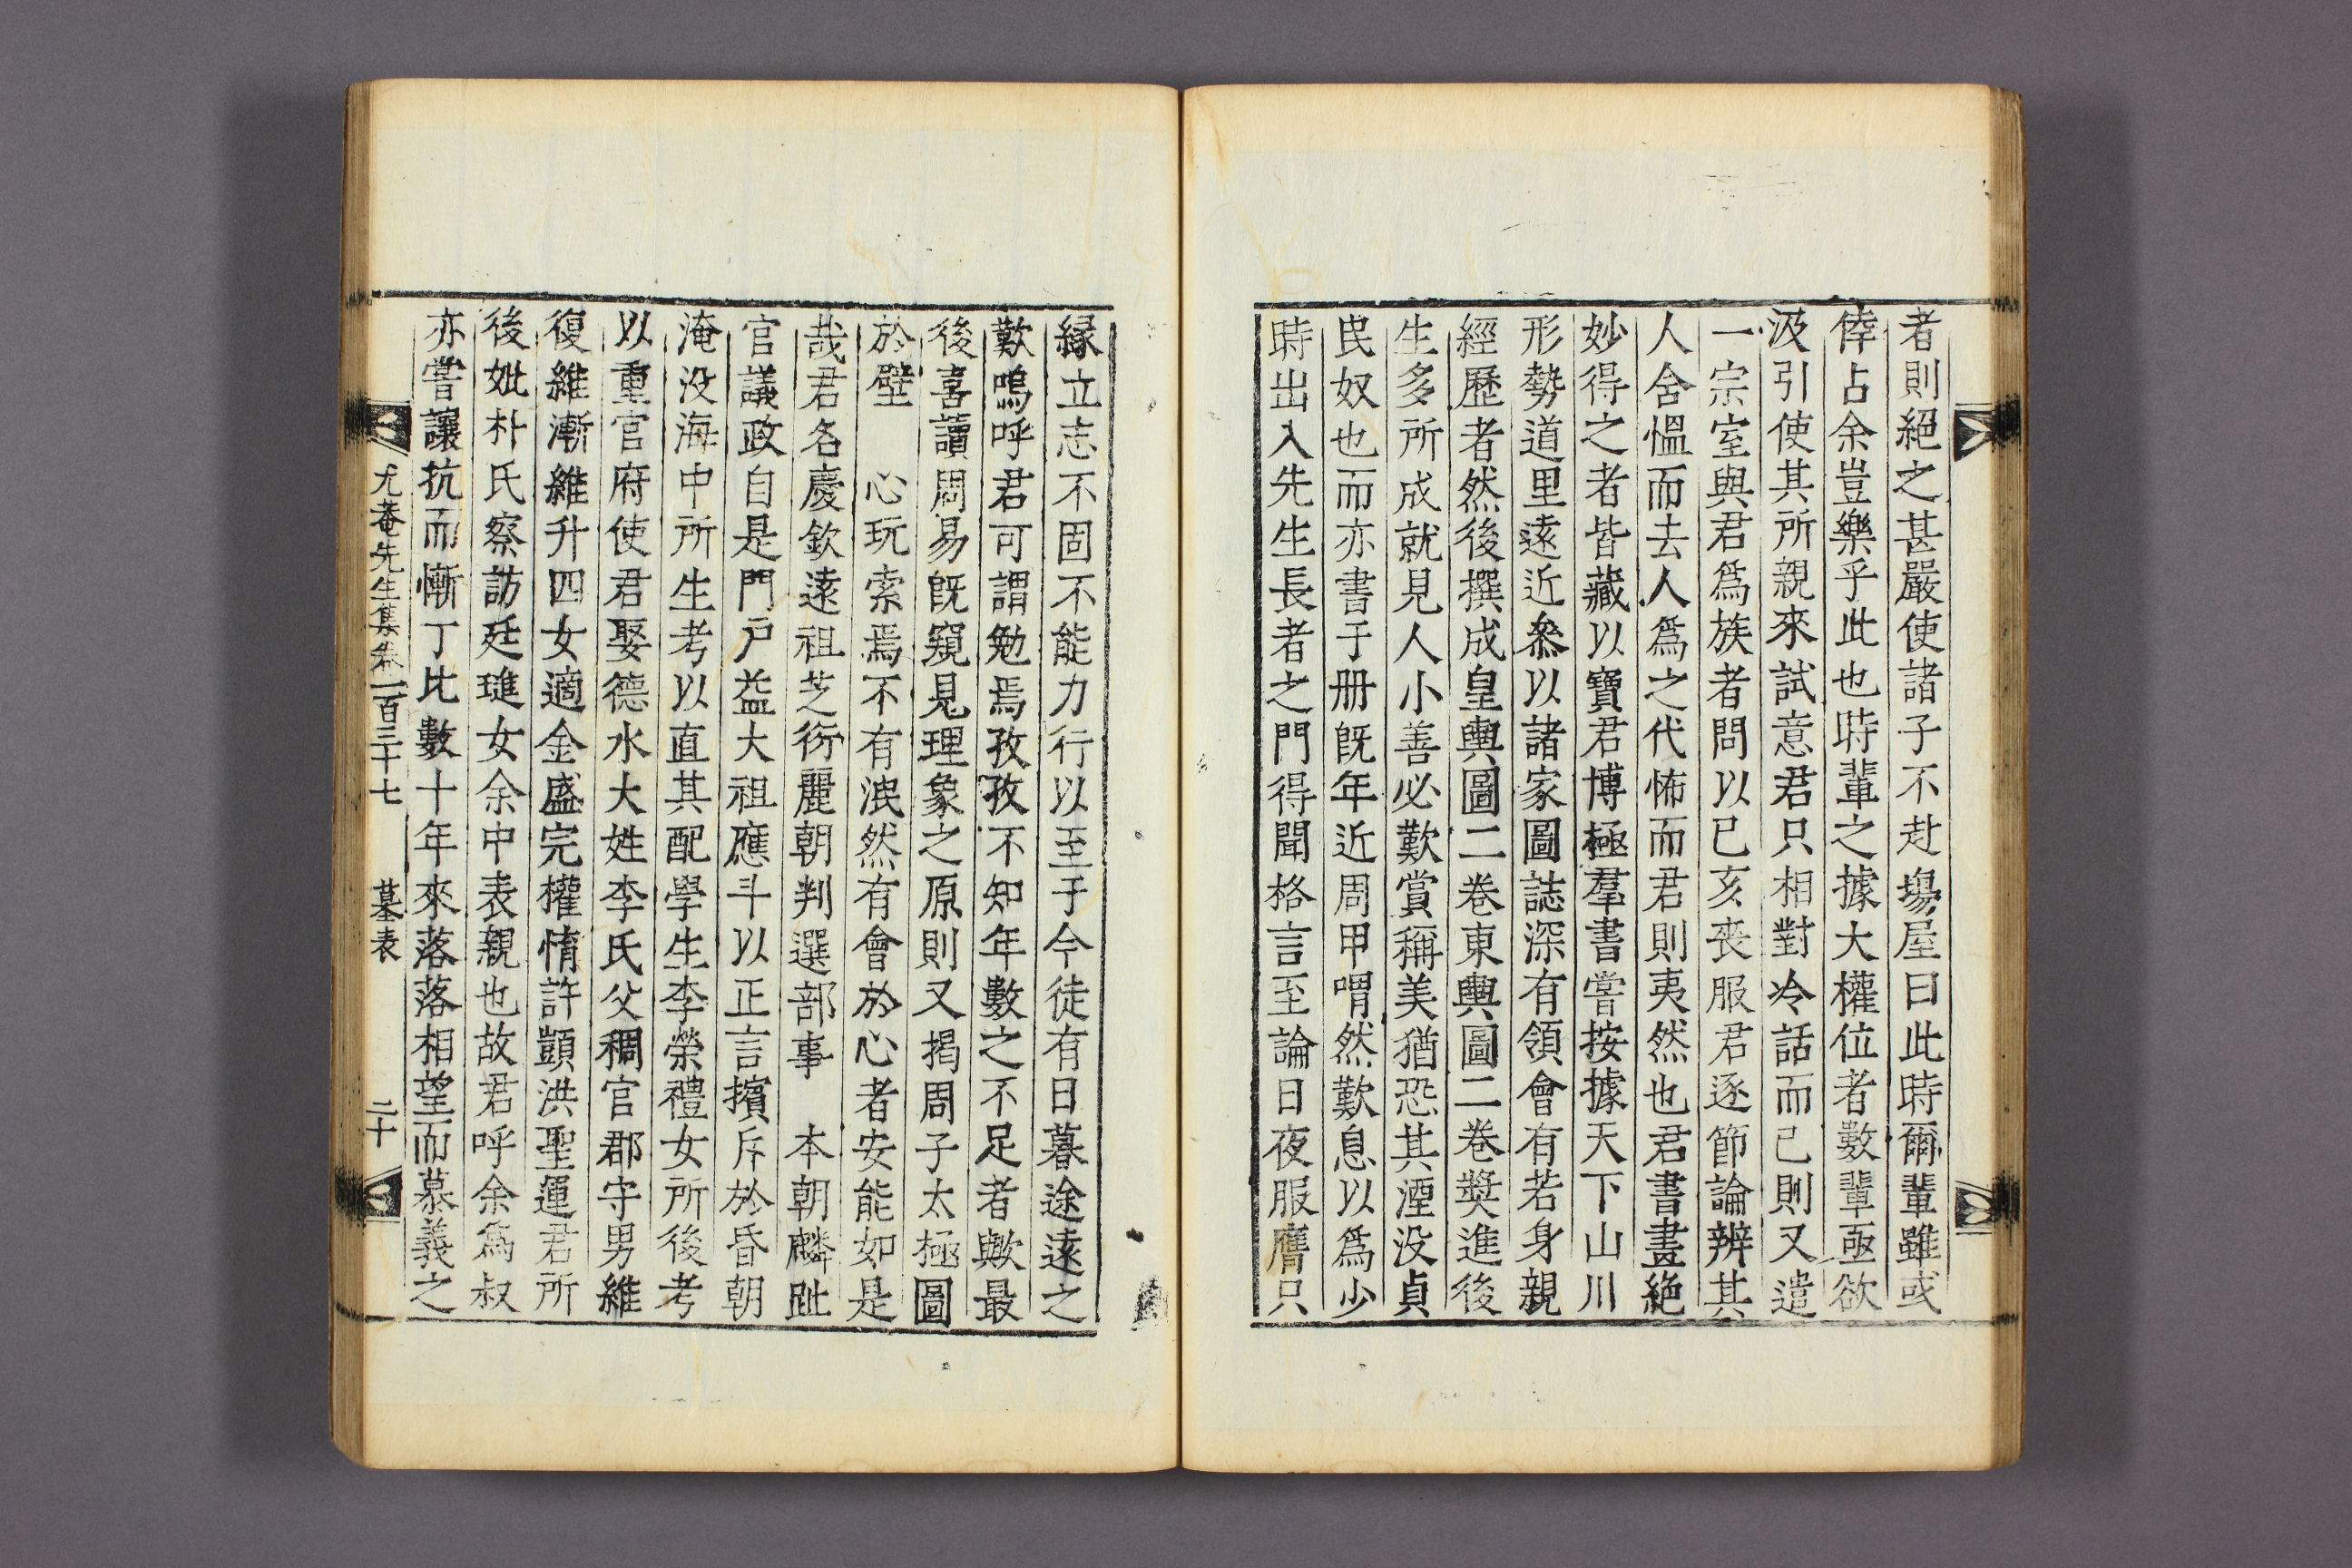 者則絕之甚嚴使諸子不赴場屋曰此時爾輩雖或
倖占余豈樂乎此也時輩之據大權位者數輩亟欲
汲引使其所親來試意君只相對冷話而已則又遣
一宗室與君爲族者問以己亥喪服君逐節論辨其
人舍慍而去人爲之代怖而君則夷然也君書畫絶
妙得之者皆藏以寶君博極羣書嘗按據天下山川
形勢道里遠近叅以諸家圖誌深有領會有若身親
經歷者然後撰成皇輿圖二卷東輿圖二卷奬進後
生多所成就見人小善必歎賞稱美猶恐其湮没貞
民奴也而亦書于册旣年近周甲喟然歎息以爲少
時出入先生長者之門得聞格言至論日夜服膺只
縁立志不固不能力行以至于今徒有日暮途遠之
歎嗚呼君可謂勉焉孜孜不知年數之不足者歟最
後喜讀周易旣窺見理象之原則又揭周子太極圖
於壁 心玩索焉不有泯然有會於心者安能如是
哉君名慶欽遠祖芝衍麗朝判選部事 本朝麟趾
官議政自是門戸益大祖應斗以正言擯斥於昏朝
淹没海中所生考以直其配學生李榮禮女所後考
以重官府使君娶德水大姓李氏父稠官郡守男維
復維漸維升四女適金盛完權惰許顗洪聖運君所
後妣朴氏察訪廷璡女余中表親也故君呼余爲叔
亦嘗讓抗而慚丁比數十年來落落相望而慕義之
尤菴先生集卷一百三十七 墓表 二十